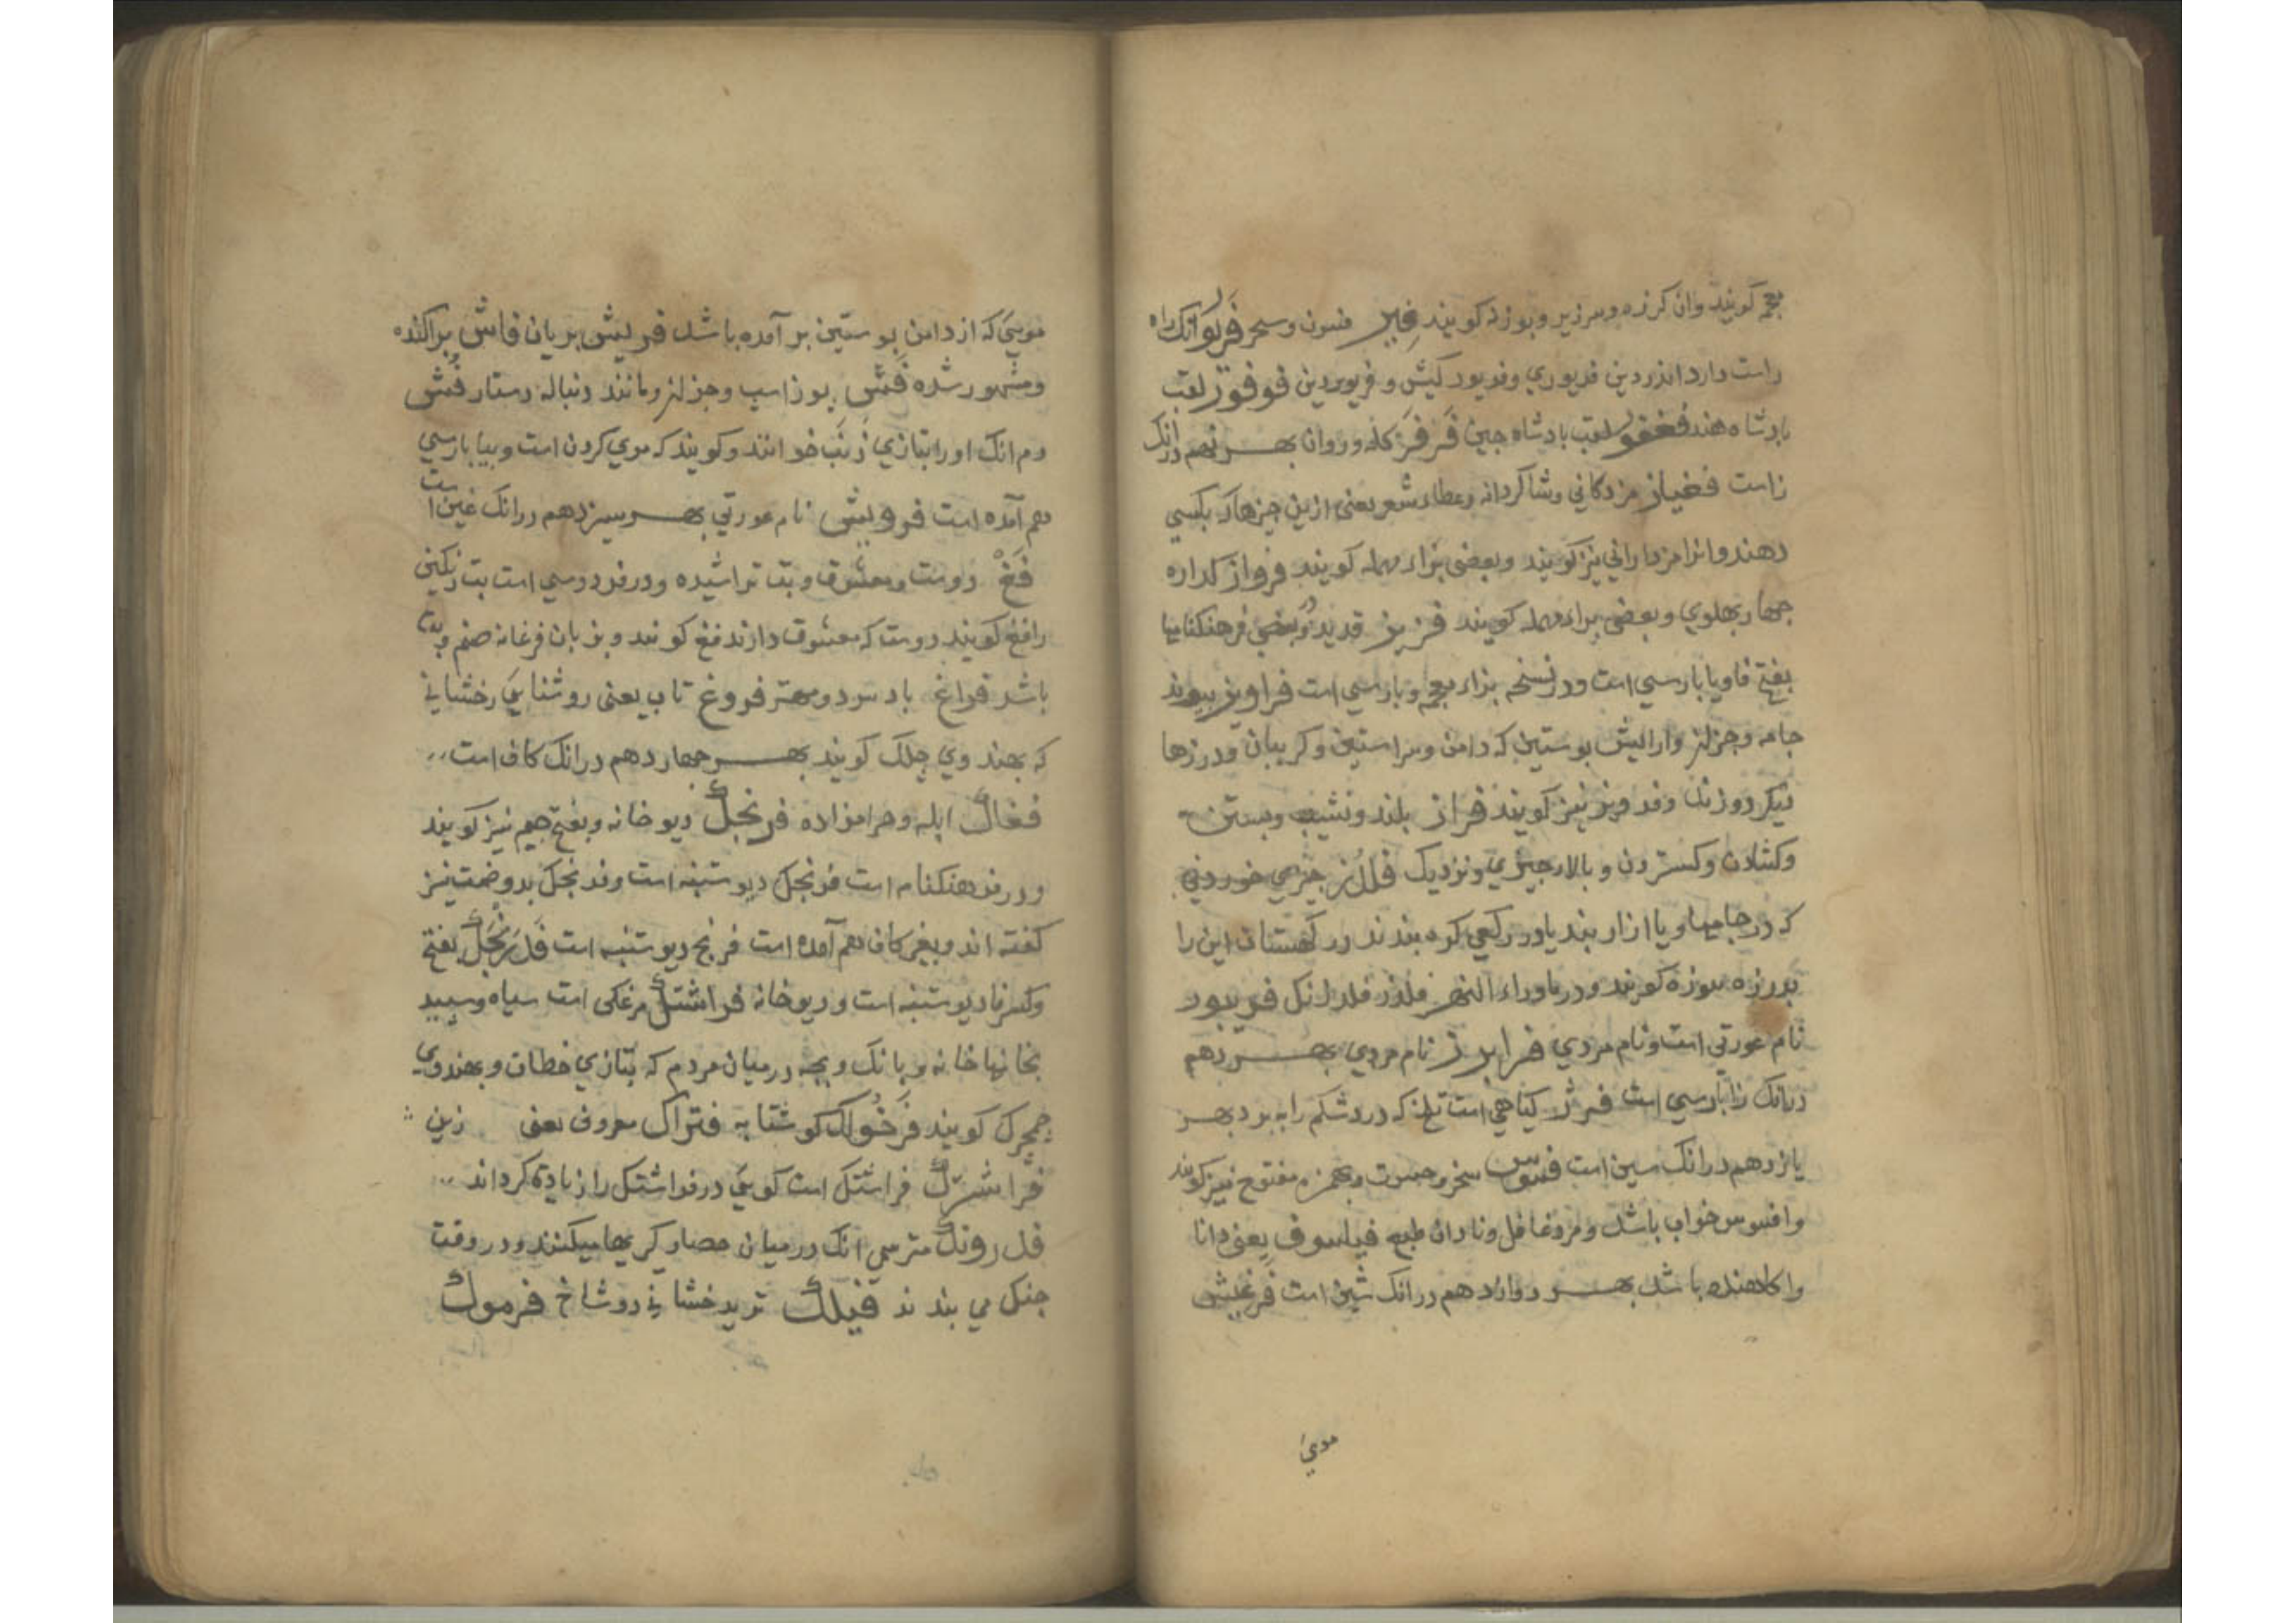 کویند وان کرزه وسرزیر وبوزنه کویند غیر فسون وسحر فریور انک راه
راست دارد اندر دین فریوری وفریور کیش وفریوردین فوفور لقب
بادشاه هند فغفور لقب بادشاه چین فرفر کله وروان بهر نهم درانک
زاست فغیاز مزدکانی وشاکردانه وعطاء شعر یعنی ازین چیزها که بکسی
دهند وانرا مزدارانی نیز کویند وبعضی براء مهمله کویند فرواز کداره
چهار بهلوی وبعضی براء مهمله کویند فریز قدید وبعضی فرهنکنامها
بفتح فا ویا بارسی است ودر نسخه بزاء معجم وبارسی است فراویز بیوند
جامه وجز ان وارایش بوستین که دامن وسر استین وکریبان ودرزها
دیکر دوزند وفرویز نیز کویند فراز بلند ونشیب وبستن
وکشادن وکستردن وبالا رجیزی ونزدیک فلرز جیزی خوردنی
که در جامها ویا ازار بند یا در رکمی کره بندند در کهستان این را
بدرزه سوزه کویند ودر ماوراء النهر فلرز فلرلنک فریبور
نام عورتی است ونام مردی فرابرز نام مردی بهر دهم
درانک زا بارسی است فرژ کیاهی است تلخ که درد شکم را به برد بهر
یازدهم درانک سین است فسوس سخر وحسرت وبهمزه مفتوح نیز کویند
وافسوس خواب باشد ومرد غافل ونادان طبع فیلسوف یعنی دانا
واکاهنده باشد بهر دوازدهم درانک شین است فرغیش
موئی
موئی که از دامن بوستین بر آمده باشد فریش بریان فاش براکنده
ومشهور شده فش بوز اسپ وجز ان ومانند دنباله دستار فش
دم انک اورا بتازی ذنب خوانند وکویند که موی کردن است وببا بارسی
هم آمده است فرویش نام عورتی بهر سیزدهم درانک غین است
فغ دوست ومعشوق وبت تراشیده ودر فردوسی است بت زنکین
رافغ کویند دوست که معشوق دارند فغ کویند وبزبان فرغانه صنم وبت
باشد فراغ باد سرد ومهتر فروغ تاب یعنی روشنایی رخشانی
که بهندوی چلک کویند بهر چهاردهم درانک کاف است
فغاک ابله وحرامزاده فرنجک دیو خانه وبفتح جیم نیز کویند
ودر فرهنکنامه است فرنجک دیو ستنبه است وفرنجک بدو ضمت نیز
کفته اند وبغیر کاف هم آمده است فرنج دیو ستنبه است فدرنجک بفتح
وکسر فا دیو ستنبه است ودیو خانه فراشتک مرغکی است سیاه وسپید
بخانها خانه وبانک وبچه درمیان مردم که بتازی خطاف وبهندوی
چمچرک کویند فرخواک کوشتابه فتراک معروف یعنی زین
فراشترک فراشتک است کویی در فراشتک را زیاده کرداند
فدروناک مترسی انک درمیان حصار وکریها میکنند ودر وقت
جنک می بندند فیلک تیر بدخشانی دوشاخ فرموک